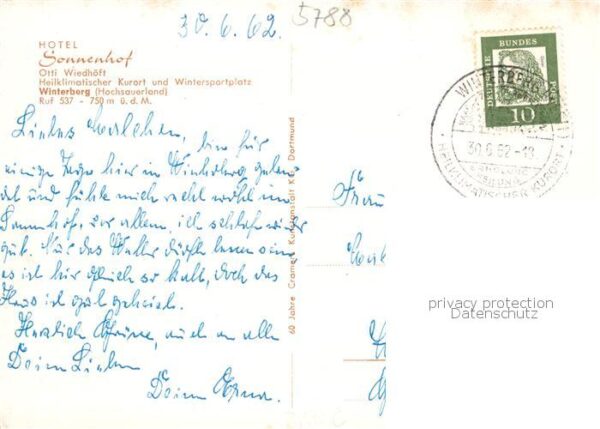 30.6.62.
5788
HOTEL
Sonnenhof
Otti Wiedhöft
Heilklimatischer Kurort und Wintersportplatz
Winterberg (Hochsauerland)
Ruf 537 - 750 m ü. d. M.
Liebes bin für
einige Tage hier in Winterberg
und fühle mich recht wohl im
Sonnenhof, vor allem, ich schlafe wieder
gut. Nur das Wetter dürfte besser sein
es ist hier gleich so kalt, doch das
Haus ist gut geheizt.
Herzliche Grüsse, auch an alle
Deine Lieben
Deine Erna.
60 Jahre Cramers Kunstanstalt KG, Dortmund
Frau
DEUTSCHE BUNDES POST
10
WINTERBERG
30.6.62-18
HEILKLIMATISCHER KURORT
privacy protection
Datenschutz